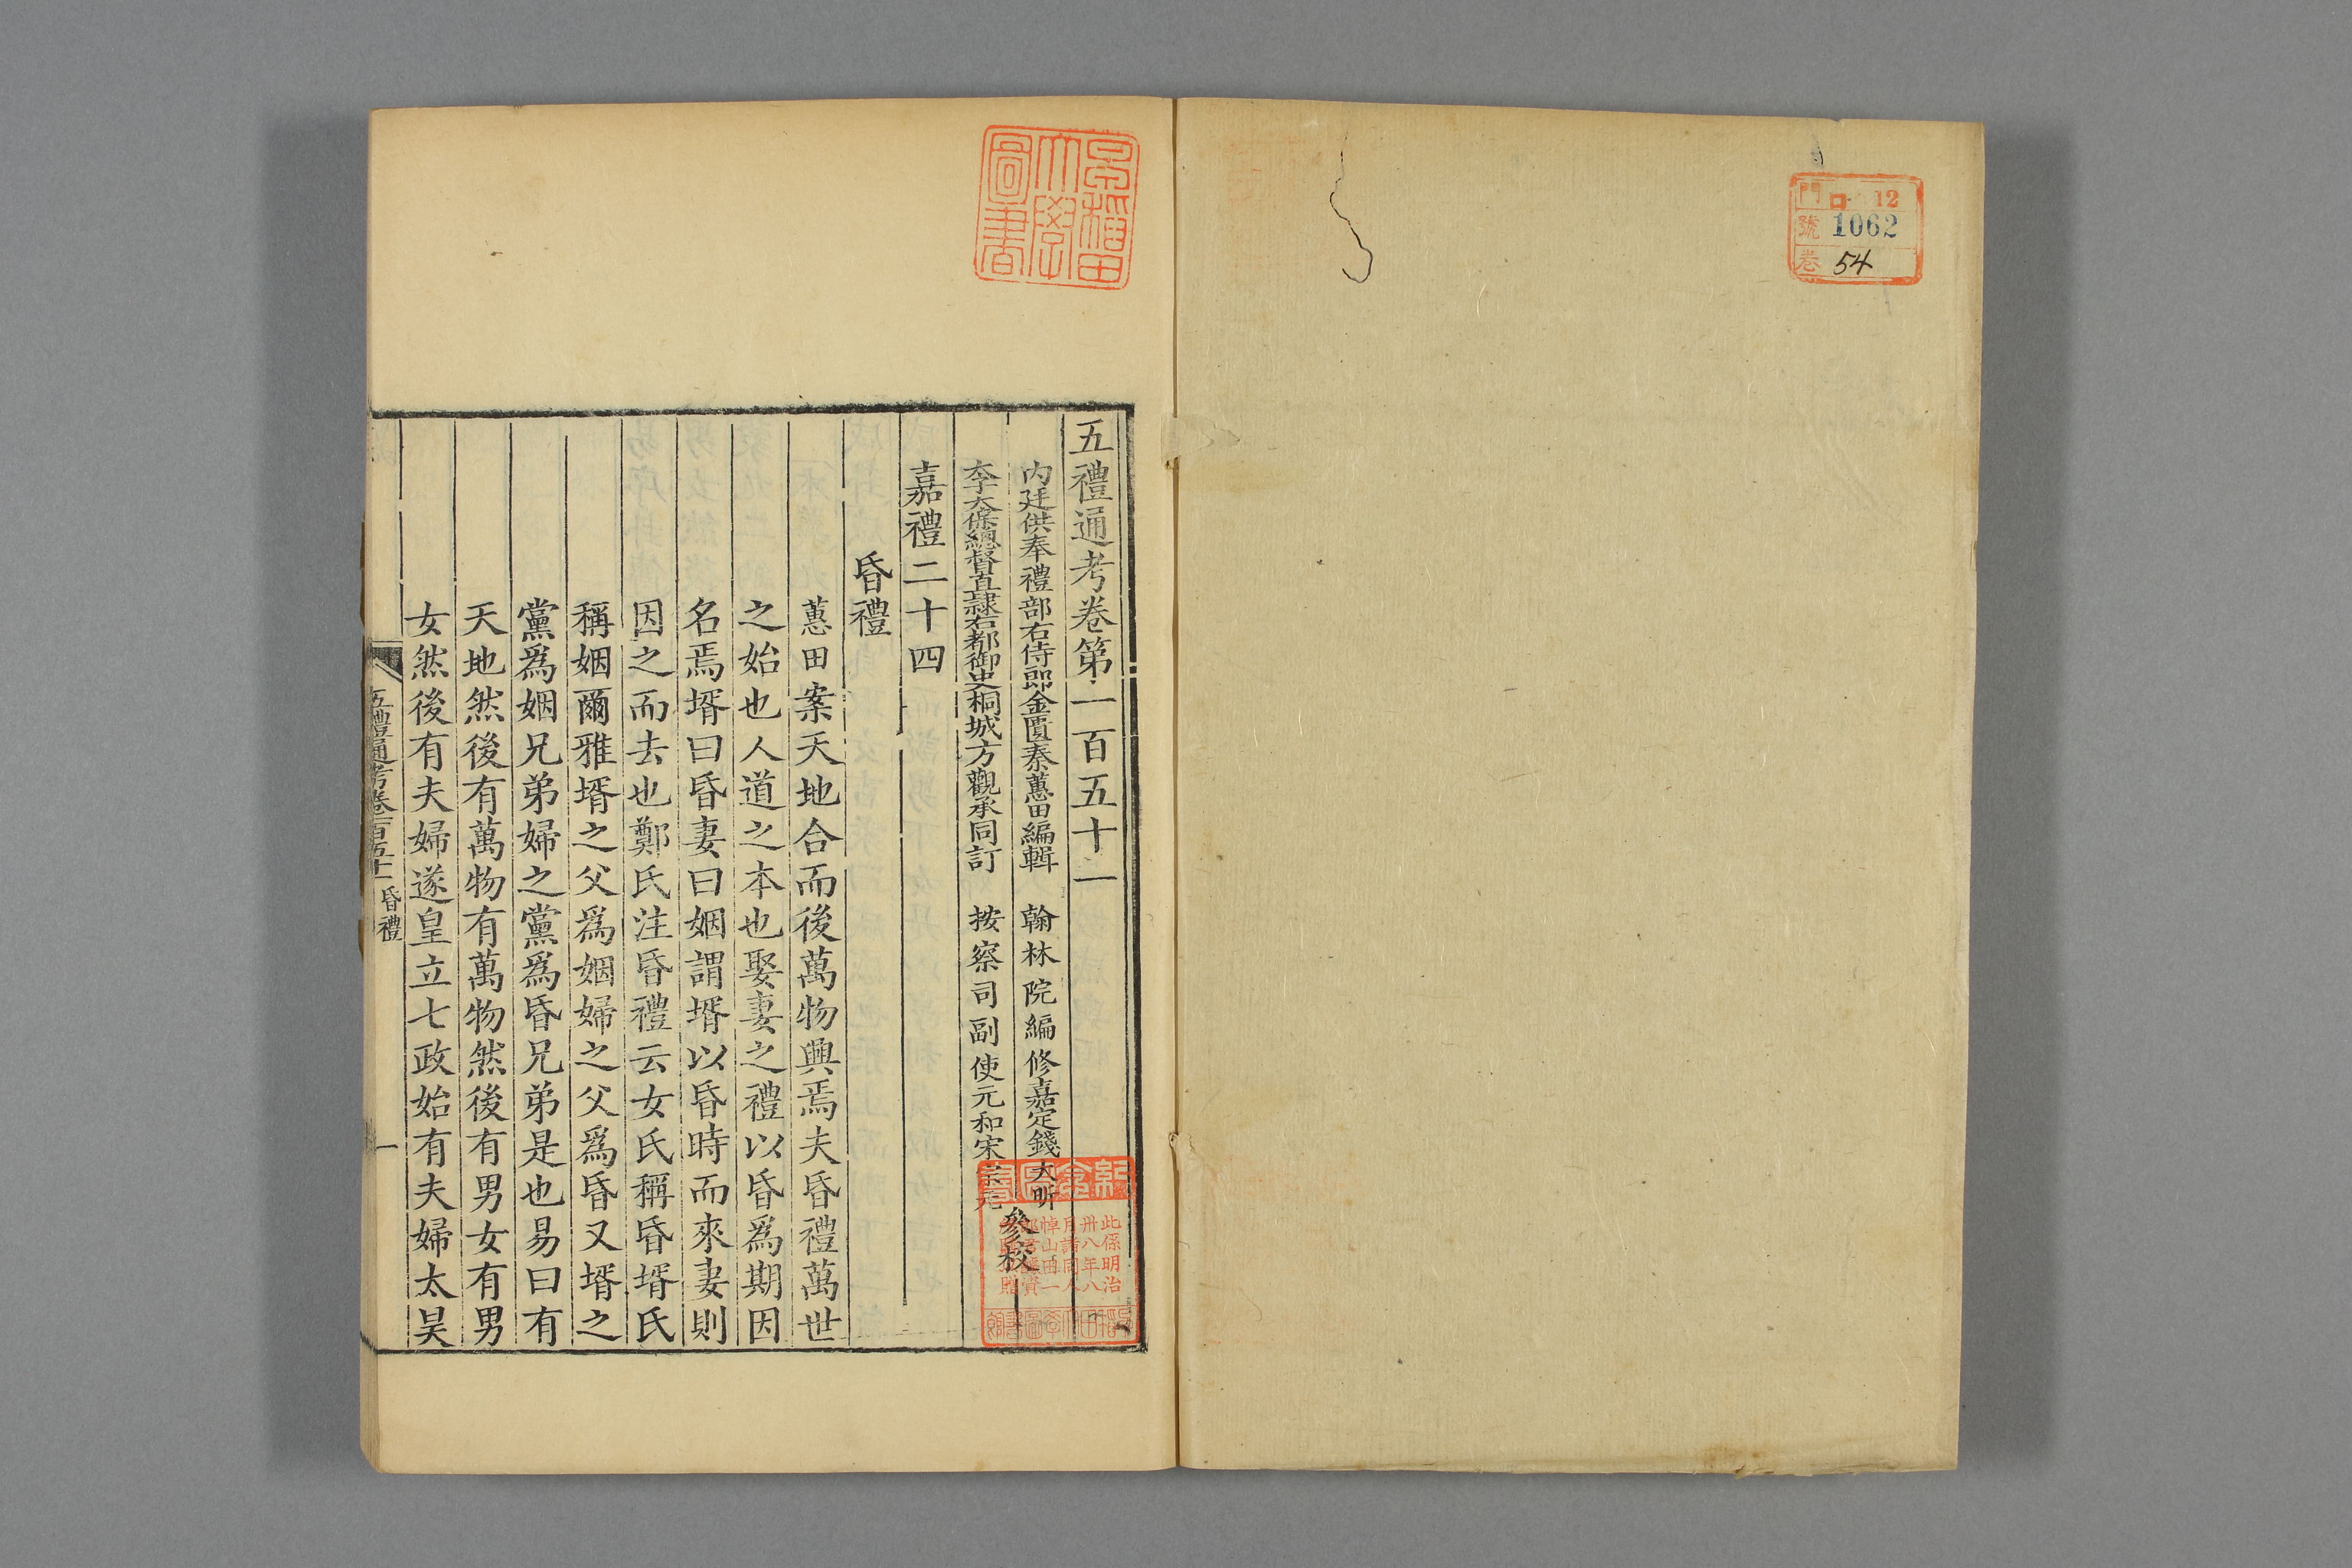 門 ロ 12
號 1062
卷 54
早稲田大學圖書
五禮通考卷第一百五十一
內廷供奉禮部右侍郎金匱秦蕙田編輯 翰林院編修嘉定錢大昕
太保總督直隸右都御史桐城方觀承同訂 按察司副使元和宋宗元
參校
嘉禮二十四
昏禮
蕙田案天地合而後萬物興焉夫昏禮萬世
之始也人道之本也娶妻之禮以昏爲期因
名焉壻曰昏妻曰姻謂壻以昏時而來妻則
因之而去也鄭氏注昏禮云女氏稱昏壻氏
稱姻爾雅壻之父爲姻婦之父爲昏又壻之
黨爲姻兄弟婦之黨爲昏兄弟是也易曰有
天地然後有萬物有萬物然後有男女有男
女然後有夫婦遂皇立七政始有夫婦太昊
五禮通考卷一百五十一 昏禮 一
紀念圖書
此係明治
卅八年八